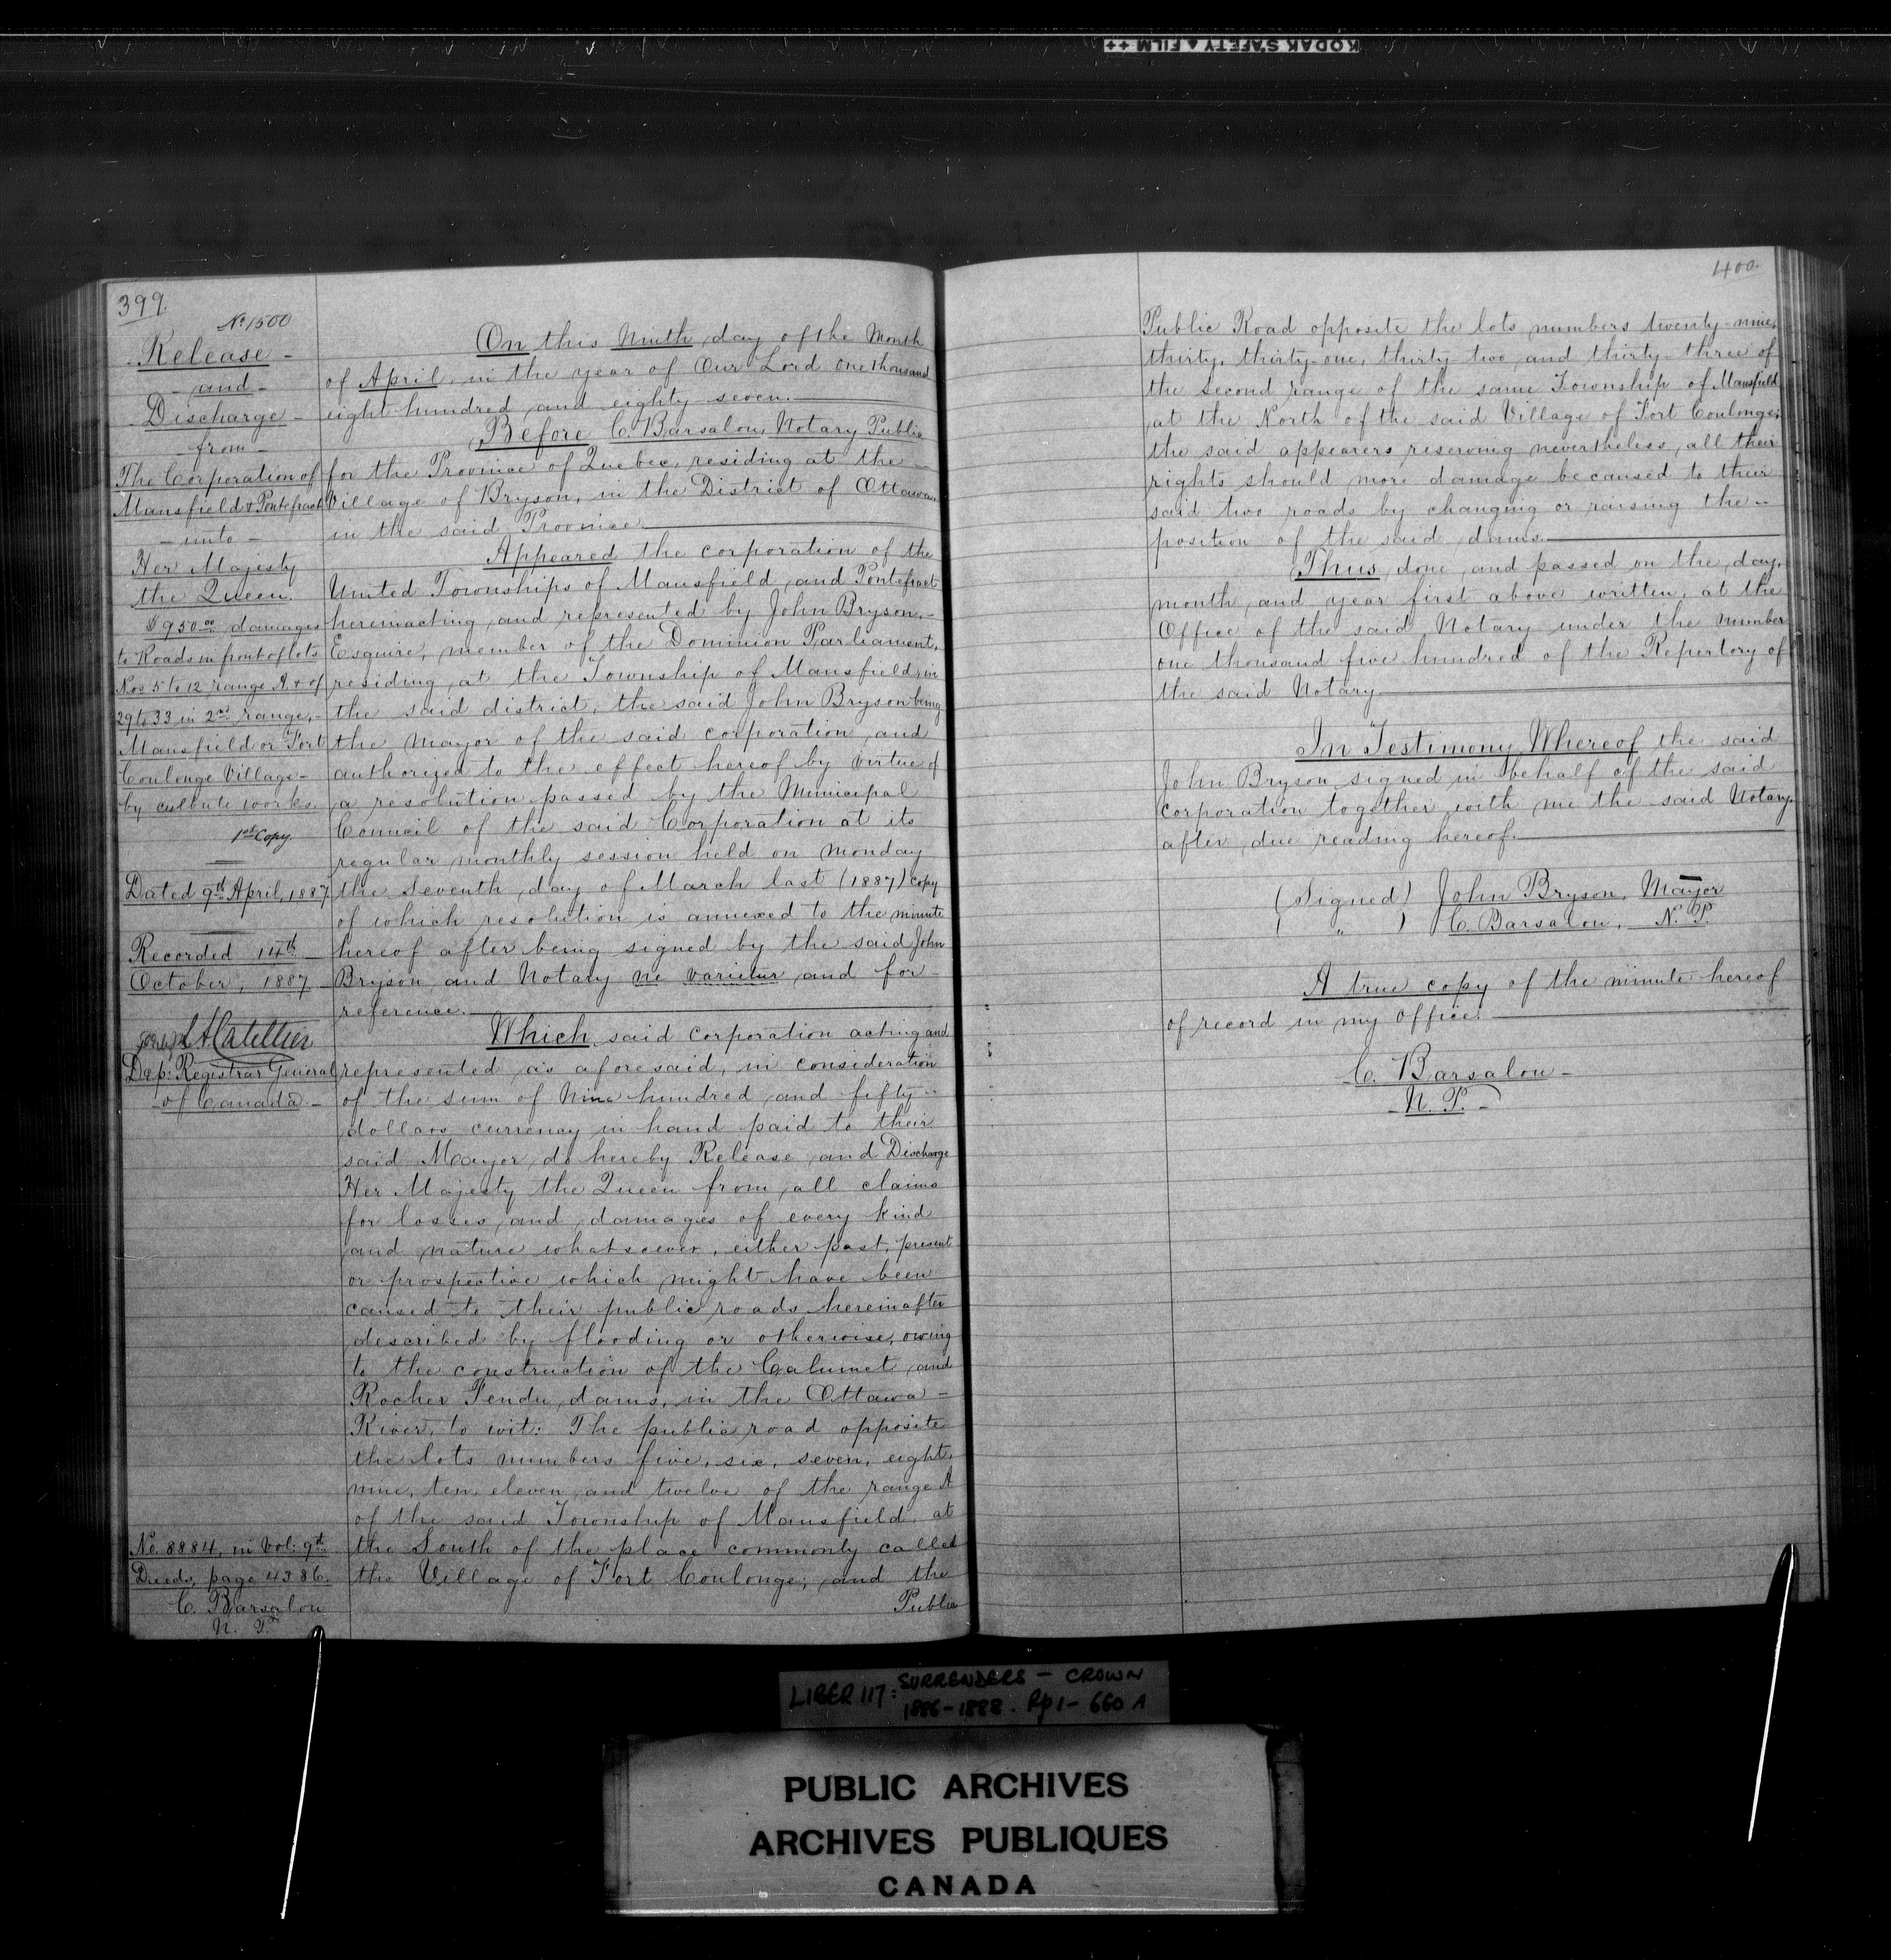 KODAK SAFETY FILM ++
399.
No 1500
Release -
- and -
Discharge -
- from -
The Corporation of
Mansfield & Pontefract
- unto -
Her Majesty
the Queen.
$950.00 damages
to Roads in front of lots
Nos 5 to 12 range A. & of
29 to 33 in 2nd range, -
Mansfield or Fort
Coulonge Village -
by works.
1st Copy.
Dated 9th April, 1887.
Recorded 14th
October, 1887
Dep: Registrar General
- of Canada -
No. 8884, in Vol: 9th
Deeds, page 4386.
C. Barsalou
N. P.
On this Ninth day of the Month
of April, in the year of Our Lord one thousand
eight hundred and eighty seven.
Before C. Barsalou, Notary Public
for the Province of Quebec, residing at the -
Village of Bryson, in the District of Ottawa,
in the said Province.
Appeared the corporation of the
United Townships of Mansfield and Pontefract
hereinacting and represented by John Bryson, -
Esquire, member of the Dominion Parliament,
residing at the Township of Mansfield, in
the said district, the said John Bryson being
the Mayor of the said corporation and
authorized to the effect hereof by virtue of
a resolution passed by the Municipal
Council of the said Corporation at its
regular monthly session held on Monday
the Seventh day of March last (1887) copy
of which resolution is annexed to the minute
hereof after being signed by the said John
Bryson and Notary ne varietur and for
reference.
Which said corporation acting and
represented as aforesaid, in consideration
of the sum of Nine hundred and fifty -
dollars currency in hand paid to their
said Mayor, do hereby Release and Discharge
Her Majesty the Queen from all claims
for losses and damages of every kind
and nature whatsoever, either past, present
or prospective which might have been
caused to their public roads hereinafter
described by flooding or otherwise, owing
to the construction of the Calumet and
Rocher Fendu dams, in the Ottawa -
River, to wit: The public road opposite
the lots numbers five, six, seven, eight,
nine, ten, eleven and twelve of the range A
of the said Township of Mansfield, at
the South of the place commonly called
the Village of Fort Coulonge; and the
Public
400.
Public Road opposite the lots numbers twenty-nine,
thirty, thirty-one, thirty-two and thirty-three of
the second range of the same Township of Mansfield
at the North of the said Village of Fort Coulonge;
the said appearers reserving nevertheless, all their
rights should more damage be caused to their
said two roads by changing or raising the -
position of the said dams.
Thus done and passed on the day,
month and year first above written, at the
Office of the said Notary under the number
one thousand five hundred of the Repertory of
the said Notary
In Testimony Whereof the said
John Bryson signed in behalf of the said
corporation together with me the said Notary.
after due reading hereof.
(Signed) John Bryson, Mayor
( " ) C. Barsalou, N. P.
A true copy of the minute hereof
of record in my office.
C. Barsalou -
- N. P. -
LIBER 117: SURRENDERS - CROWN
1886-1888. Pp 1-660 A
PUBLIC ARCHIVES
ARCHIVES PUBLIQUES
CANADA